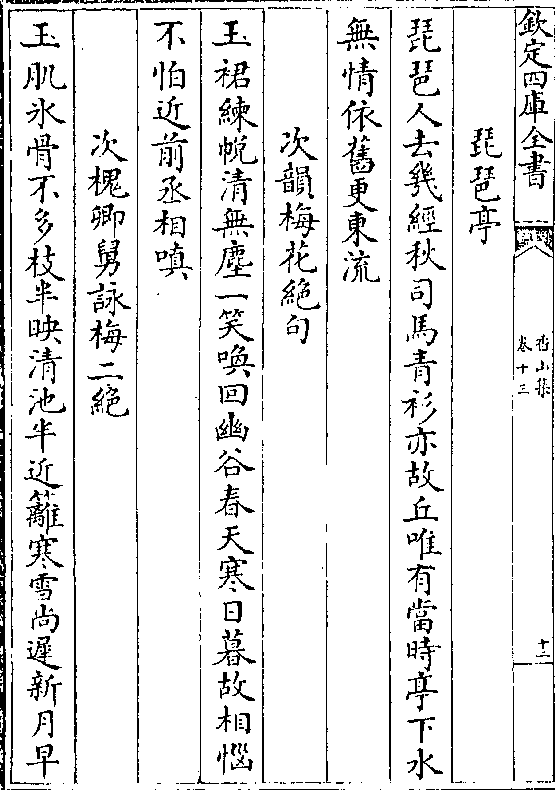 欽定四庫全書
香山集
卷十三
十二
琵琶亭
琵琶人去幾經秋司馬青衫亦故丘唯有當時亭下水
無情依舊更東流
次韻梅花絶句
玉裙練帨清無塵一笑喚回幽谷春天寒日暮故相惱
不怕近前丞相嗔
次槐卿舅詠梅二絶
玉肌氷骨不多枝半映清池半近籬寒雪尚遲新月早